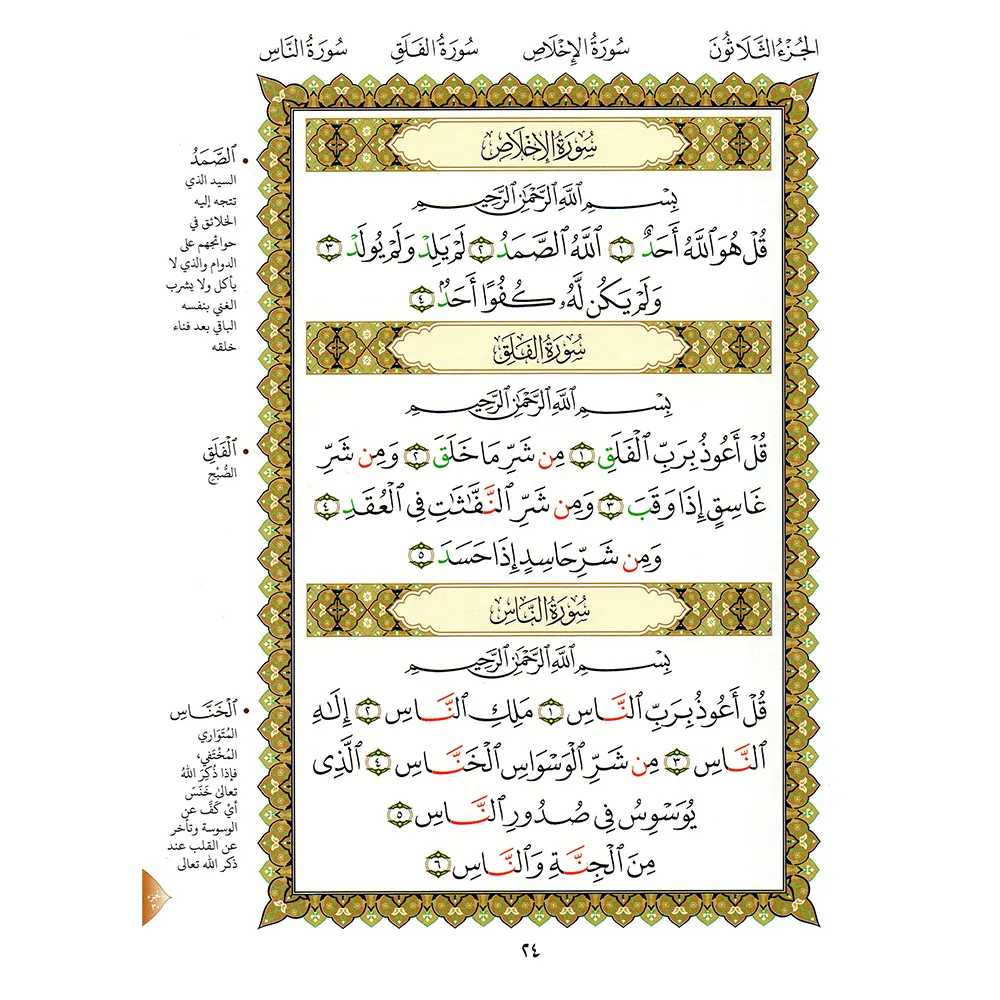 الجُزْءُ الثَّلَاثُونَ سُورَةُ الإِخْلَاصِ سُورَةُ الفَلَقِ سُورَةُ النَّاسِ
سُورَةُ الإِخْلَاصِ
بِسْمِ ٱللَّهِ ٱلرَّحْمَٰنِ ٱلرَّحِيمِ
قُلْ هُوَ ٱللَّهُ أَحَدٌ ١ ٱللَّهُ ٱلصَّمَدُ ٢ لَمْ يَلِدْ وَلَمْ يُولَدْ ٣
وَلَمْ يَكُن لَّهُۥ كُفُوًا أَحَدٌۢ ٤
سُورَةُ الفَلَقِ
بِسْمِ ٱللَّهِ ٱلرَّحْمَٰنِ ٱلرَّحِيمِ
قُلْ أَعُوذُ بِرَبِّ ٱلْفَلَقِ ١ مِن شَرِّ مَا خَلَقَ ٢ وَمِن شَرِّ
غَاسِقٍ إِذَا وَقَبَ ٣ وَمِن شَرِّ ٱلنَّفَّٰثَٰتِ فِى ٱلْعُقَدِ ٤
وَمِن شَرِّ حَاسِدٍ إِذَا حَسَدَ ٥
سُورَةُ النَّاسِ
بِسْمِ ٱللَّهِ ٱلرَّحْمَٰنِ ٱلرَّحِيمِ
قُلْ أَعُوذُ بِرَبِّ ٱلنَّاسِ ١ مَلِكِ ٱلنَّاسِ ٢ إِلَٰهِ
ٱلنَّاسِ ٣ مِن شَرِّ ٱلْوَسْوَاسِ ٱلْخَنَّاسِ ٤ ٱلَّذِى
يُوَسْوِسُ فِى صُدُورِ ٱلنَّاسِ ٥
مِنَ ٱلْجِنَّةِ وَٱلنَّاسِ ٦
• ٱلصَّمَدُ
السيد الذي
تتجه إليه
الخلائق في
حوائجهم على
الدوام والذي لا
يأكل ولا يشرب
الغني بنفسه
الباقي بعد فناء
خلقه
• ٱلْفَلَقِ
الصُّبْحِ
• ٱلْخَنَّاسِ
المُتَوَارِي
المُخْتَفِي،
فإذا ذُكِرَ اللهُ
تعالى خَنَسَ
أيْ كَفَّ عن
الوسوسة وتأخر
عن القلب عند
ذكر الله تعالى
٢٤